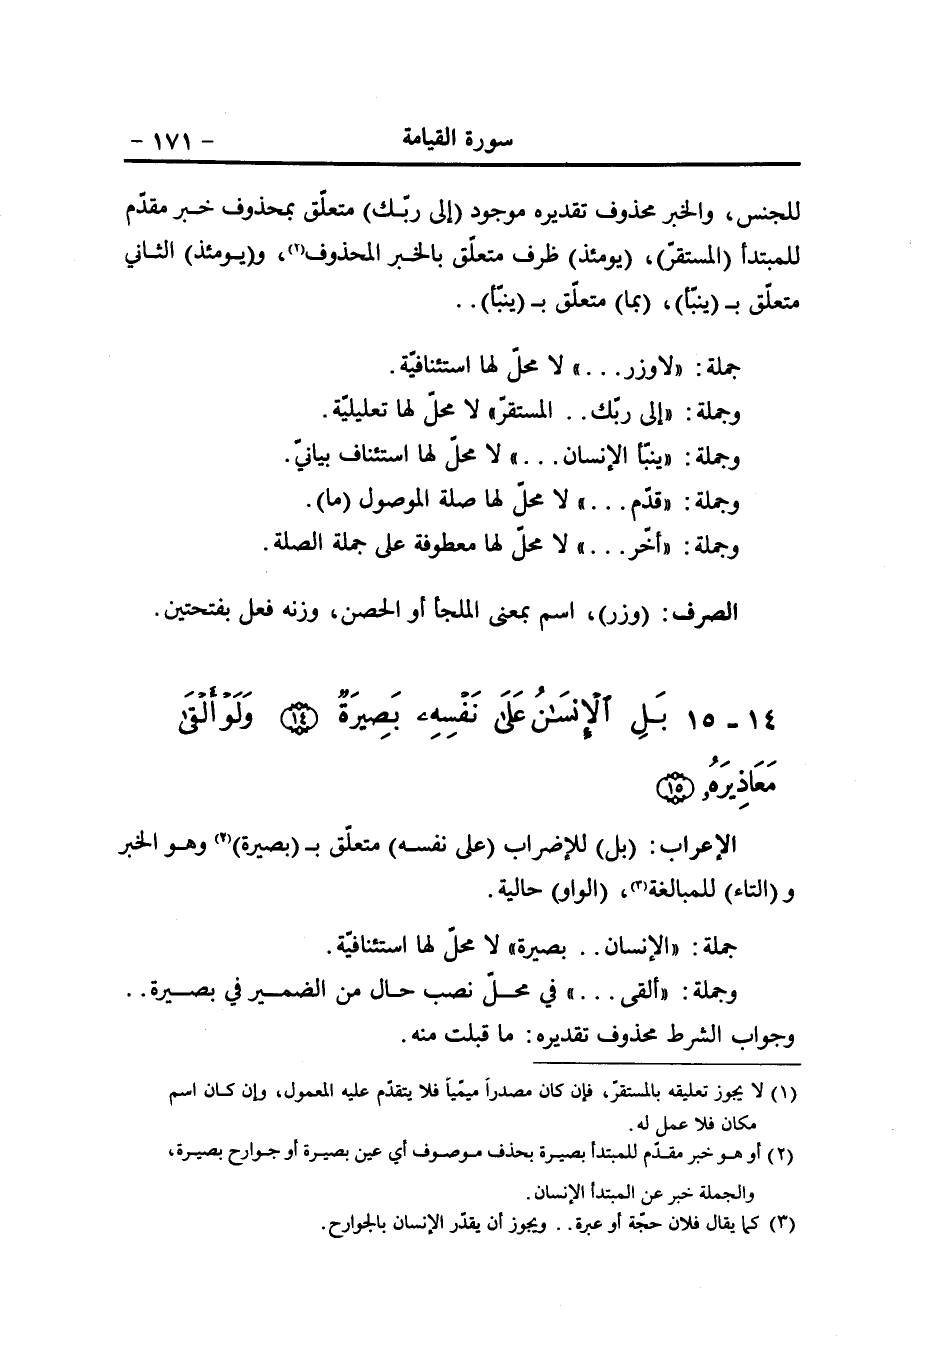 سورة القيامة - ١٧١ -
للجنس، والخبر محذوف تقديره موجود (إلى ربّـك) متعلّق بمحذوف خـبر مقدّم
للمبتدأ (المستقرّ)، (يومئذ) ظرف متعلّق بالخـبر المحذوف(١)، و(يـومئذ) الثـاني
متعلّق بـ (ينبّأ)، (بما) متعلّق بـ (ينبّأ)..
جملة: «لاوزر...» لا محلّ لها استئنافيّة.
وجملة: «إلى ربّك.. المستقرّ» لا محلّ لها تعليليّة.
وجملة: «ينبّأ الإنسان...» لا محلّ لها استئناف بيانيّ.
وجملة: «قدّم...» لا محلّ لها صلة الموصول (ما).
وجملة: «أخّر...» لا محلّ لها معطوفة على جملة الصلة.
الصرف: (وزر)، اسم بمعنى الملجأ أو الحصن، وزنه فعل بفتحتين.
١٤ - ١٥ بَلِ ٱلْإِنسَـٰنُ عَلَىٰ نَفْسِهِۦ بَصِيرَةٌ ١٤ وَلَوْ أَلْقَىٰ
مَعَاذِيرَهُۥ ١٥
الإعراب: (بل) للإضراب (على نفسـه) متعلّق بـ (بصيرة)(٢) وهـو الخبر
و (التاء) للمبالغة(٣)، (الواو) حالية.
جملة: «الإنسان.. بصيرة» لا محلّ لها استئنافيّة.
وجملة: «ألقى...» في محـلّ نصب حـال من الضمـير في بصـيرة..
وجواب الشرط محذوف تقديره: ما قبلت منه.
(١) لا يجوز تعليقه بالمستقرّ، فإن كان مصدراً ميمّياً فلا يتقدّم عليه المعمول، وإن كـان اسم
مكان فلا عمل له.
(٢) أو هـو خبر مقـدّم للمبتدأ بصيرة بحذف مـوصـوف أي عين بصيـرة أو جـوارح بصيرة،
والجملة خبر عن المبتدأ الإنسان.
(٣) كما يقال فلان حجّة أو عبرة.. ويجوز أن يقدّر الإنسان بالجوارح.